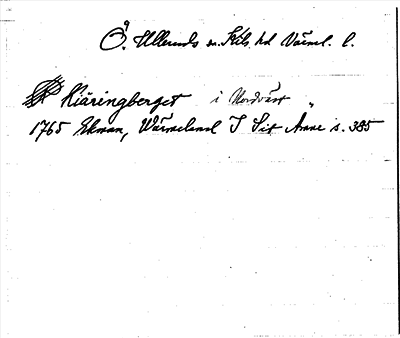 Ö. Ulleruds sn. Kils hd Värml. l.
Kiäringberget i Nordväst
1765 Ekman, Wärmeland I Sit Anne s. 385